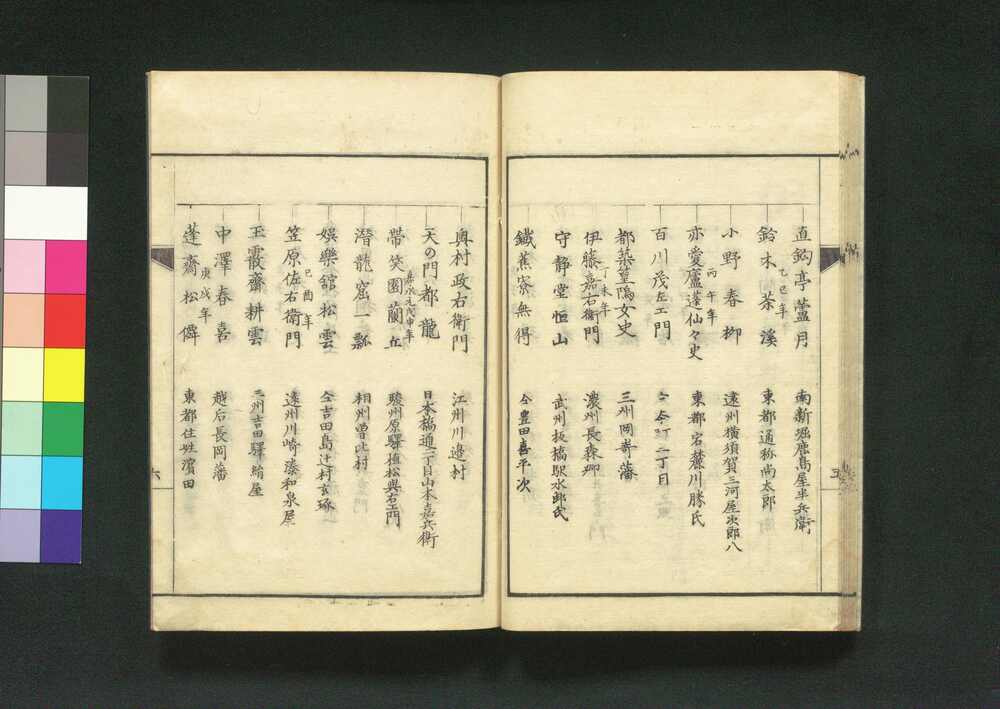 直鈎亭蘯月 南新堀鹿島屋半兵衛
乙巳年
鈴木茶溪 東都通称尚太郎
小野春柳 遠州横須賀三河屋次郎八
丙午年
亦愛廬蓬仙々史 東都宕麓川勝氏
百川茂左エ門 仝仝町二丁目
都築篁隝女史 三州岡嵜藩
丁未年
伊藤嘉右衛門 濃州長森郷
守静堂恒山 武州板橋駅水邨氏
鐵蕉寮無得 仝豊田喜平次
五
奥村政右衛門 江州川邉村
天の門都龍 日本橋通二丁目山本嘉兵衛
嘉永元戊申年
帶笑園蘭丘 駿州原驛植松與右エ門
潜龍窟一瓢 相州曽比村
娯樂舘松雲 仝吉田島辻村玄琢
己酉年
笠原佐右衛門 遠州川崎湊和泉屋
玉霰齋耕雲 三州吉田驛絹屋
中澤春喜 越后長岡藩
庚戌年
蓬齋松僊 東都住姓濱田
六